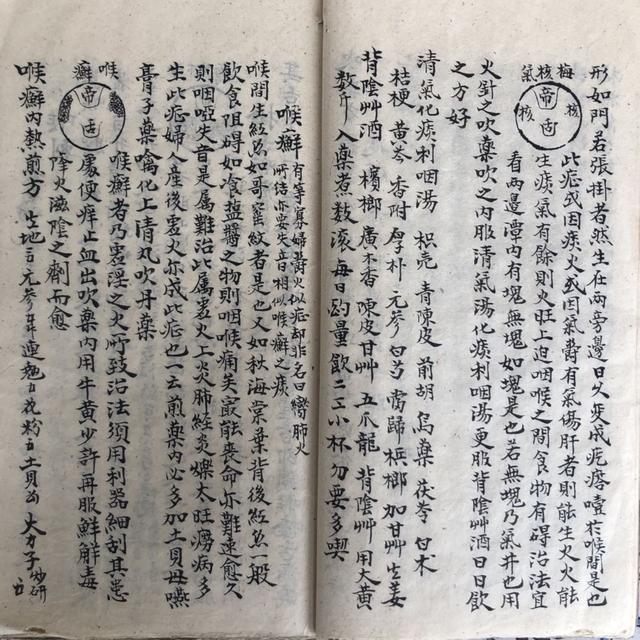 形如門若張掛者然生在兩旁邊日久变成疙瘩噎在喉間是也
梅核氣
帝舌
核
核
此症或因痰火或因氣爵有氣傷肝者則能生火火能
生痰氣有餘則火旺上迫咽喉之間食物有碍治法宜
看兩邊潭內有塊無塊如塊是也若無塊乃氣井也用
火針之吹藥吹之內服清氣湯化痰利咽湯更服背陰艸酒日日飲
之方好
清氣化痰利咽湯 枳壳 青陳皮 前胡 烏藥 茯苓 白术
桔梗 黄芩 香附 厚朴 元参 白芍 當歸 梹榔 加甘艸 生姜
背陰艸酒 檳榔 廣木香 陳皮 甘艸 五爪龍 背陰艸 用大黄
数斤 入藥煮数滚 每日酌量飲二三小杯 勿要多喫
喉癬 有等寡婦爵火似症却非名曰 肺火
所結亦要失音相似喉癬之痰
喉間生紅絲如哥窑紋者是也又如秋海棠葉背後紅絲一般
飲食阻碍如冷盐醬之物則咽喉痛矣最能喪命亦難速愈久
則咽啞失音是属難治此属虛火上炎肺経炎爍太旺癆病多
生此症婦人產後虛火亦成此症也一云煎藥內必多加土貝母嚥
膏子藥噙化上清丸吹丹藥
喉癬
帝舌
喉癬者乃虛淫之火所致治法須用利器細刮其患
處便痒止血出吹藥內用牛黄少許再服鮮解毒
降火滋陰之劑而愈
喉癬內熱煎方 生地 元参 連翹 花粉 土貝 大力子炒研